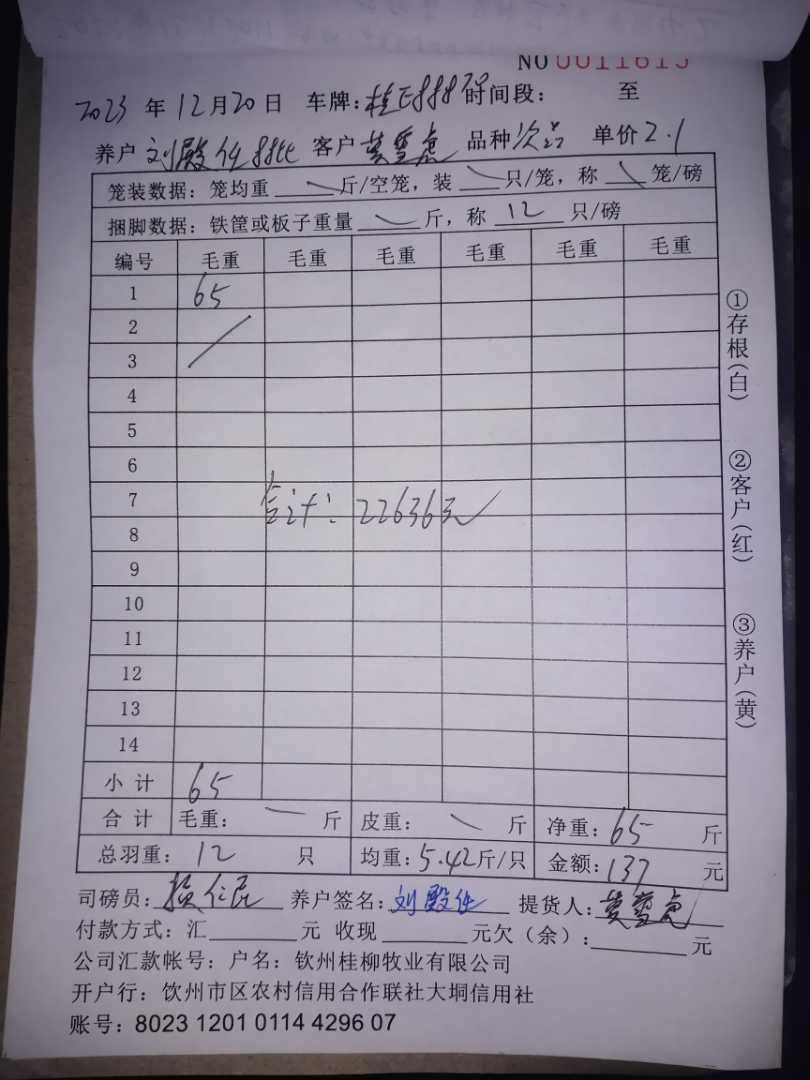 NO 0011615
2023 年 12月20日 车牌: 时间段: 至
养户 刘殿任 客户 黄雪虎 品种 次品 单价 2.1
笼装数据: 笼均重 斤/空笼, 装 只/笼, 称 笼/磅
捆脚数据: 铁筐或板子重量 斤, 称 12 只/磅
编号 毛重 毛重 毛重 毛重 毛重 毛重
1 65
2
3
4
5
6
7
合计: 22636元
8
9
10
11
12
13
14
小 计 65
合 计 毛重: 斤 皮重: 斤 净重: 65 斤
总羽重: 12 只 均重: 5.42斤/只 金额: 137 元
司磅员: 养户签名: 刘殿任 提货人: 黄雪虎
付款方式: 汇 元 收现 元欠(余): 元
公司汇款帐号: 户名: 钦州桂柳牧业有限公司
开户行: 饮州市区农村信用合作联社大垌信用社
账号: 8023 1201 0114 4296 07
①存根(白) ②客户(红) ③养户(黄)